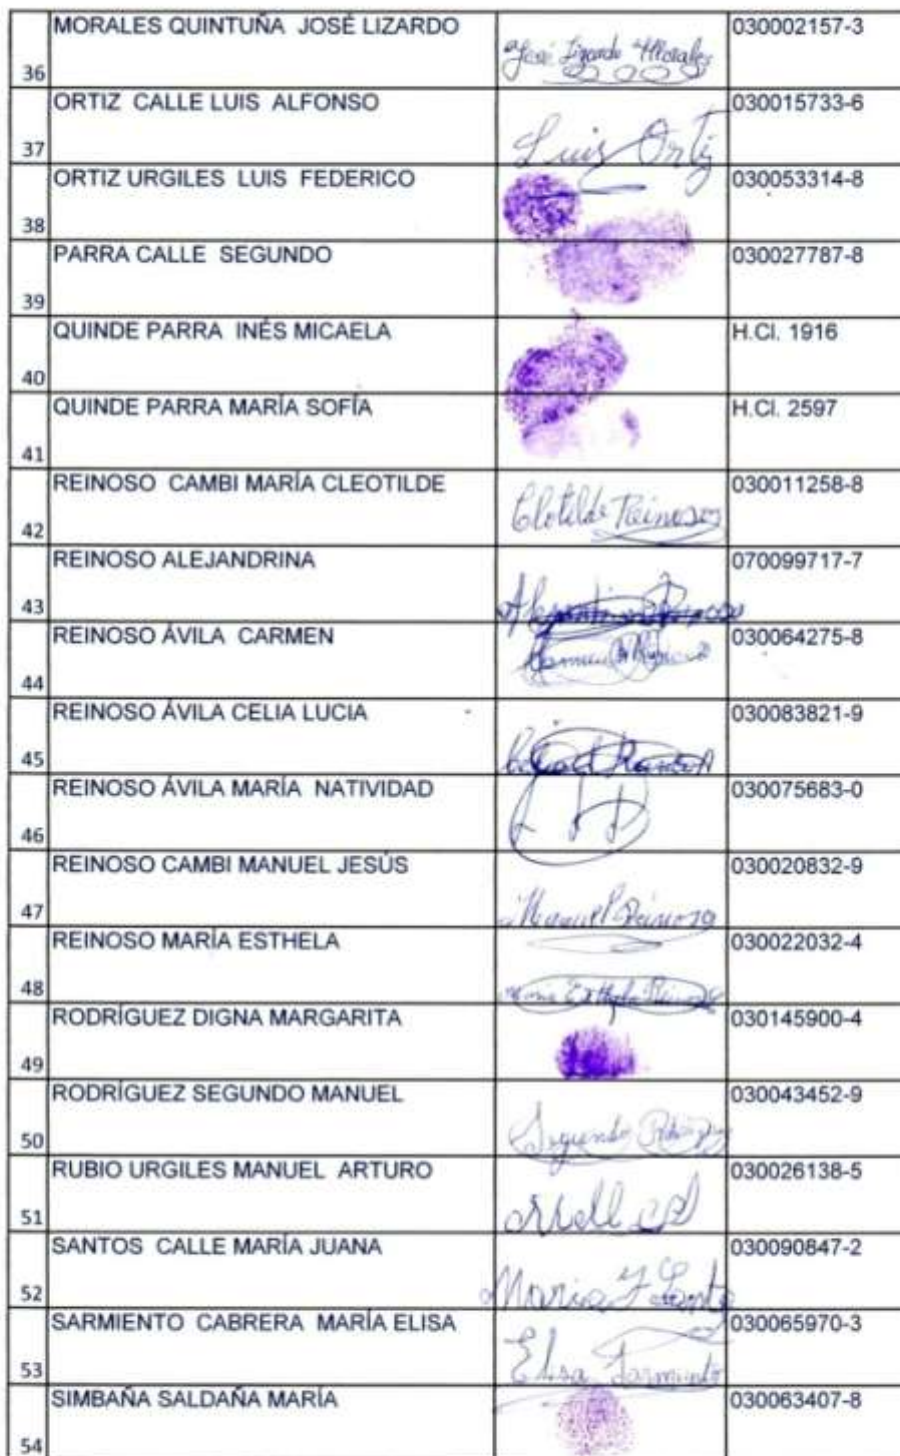 MORALES QUINTUÑA JOSÉ LIZARDO
José Lizardo Morales
030002157-3
36
ORTIZ CALLE LUIS ALFONSO
Luis Ortiz
030015733-6
37
ORTIZ URGILES LUIS FEDERICO
030053314-8
38
PARRA CALLE SEGUNDO
030027787-8
39
QUINDE PARRA INÉS MICAELA
H.Cl. 1916
40
QUINDE PARRA MARÍA SOFÍA
H.Cl. 2597
41
REINOSO CAMBI MARÍA CLEOTILDE
Clotilde Reinoso
030011258-8
42
REINOSO ALEJANDRINA
070099717-7
43
REINOSO ÁVILA CARMEN
030064275-8
44
REINOSO ÁVILA CELIA LUCIA
030083821-9
45
REINOSO ÁVILA MARÍA NATIVIDAD
030075683-0
46
REINOSO CAMBI MANUEL JESÚS
Manuel Reinoso
030020832-9
47
REINOSO MARÍA ESTHELA
030022032-4
48
RODRÍGUEZ DIGNA MARGARITA
030145900-4
49
RODRÍGUEZ SEGUNDO MANUEL
Segundo
030043452-9
50
RUBIO URGILES MANUEL ARTURO
030026138-5
51
SANTOS CALLE MARÍA JUANA
Maria J Santos
030090847-2
52
SARMIENTO CABRERA MARÍA ELISA
Elisa Sarmiento
030065970-3
53
SIMBAÑA SALDAÑA MARÍA
030063407-8
54